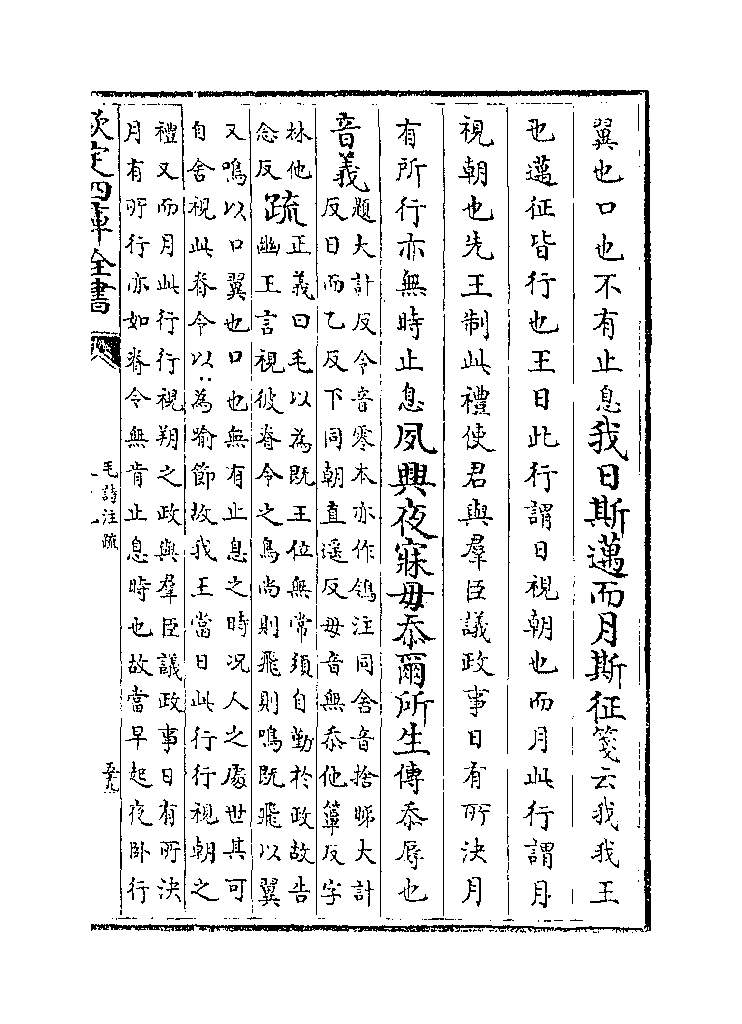 翼也口也不有止息我日斯邁而月斯征箋云我我王
也邁征皆行也王日此行謂日視朝也而月此行謂月
視朝也先王制此禮使君與羣臣議政事日有所決月
有所行亦無時止息夙興夜寐毋忝爾所生傳忝辱也
音義
題大計反令音零本亦作鴒注同舍音捨睇大計
反日而乙反下同朝直遥反毋音無忝他簟反字
林他
念反
疏
正義曰毛以為既王位無常須自勤於政故告
幽王言視彼脊令之鳥尚則飛則鳴既飛以翼
又鳴以口翼也口也無有止息之時况人之處世其可
自舍視此脊令以為喻節故我王當日此行行視朝之
禮又而月此行行視朔之政與羣臣議政事日有所決
月有所行亦如脊令無肯止息時也故當早起夜卧行
欽定四庫全書
毛詩注疏